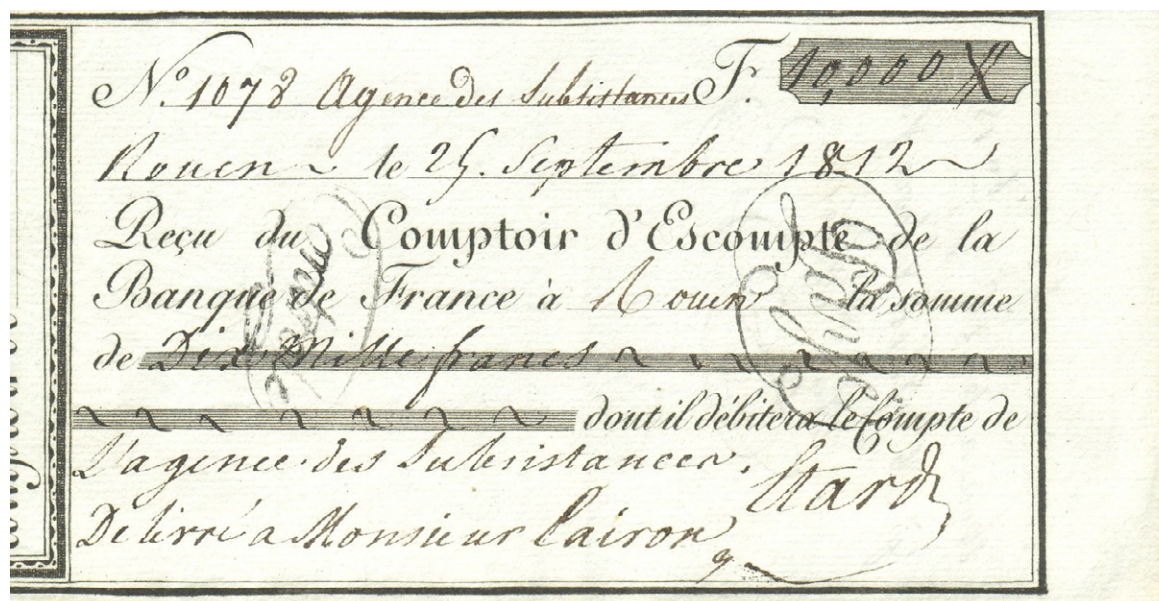 N.° 1078 Agence des Subsistances F. 10,000
Rouen le 25. Septembre 1812
Reçu du Comptoir d'Escompte de la
Banque de France à Rouen la somme
de Dix Mille francs
dont il débitera le Compte de
L'agence des Subsistances.
Delivré a Monsieur Cairon
Etard